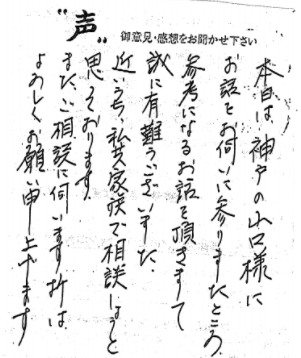 "声"
御意見・感想をお聞かせ下さい
本日は、神戸の山口様に
お話をお伺いに参りましたところ
参考になるお話を頂きまして
誠に有難うございました。
近いうち、私共家族で相談しようと
思っております。
またご相談に伺います折は
よろしくお願い申し上げます